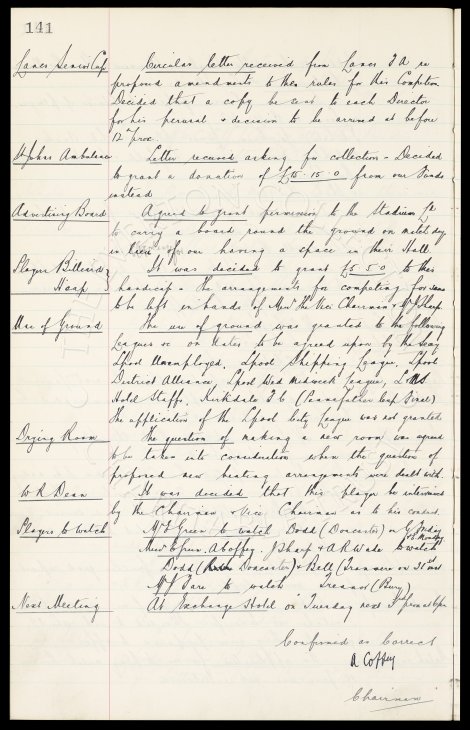 141
Lancs Senior Cup Circular letter received from Lancs F A re
proposed amendments to the rules for this Competition
Decided that a copy be sent to each Director
for his perusal & decision to be arrived at before
12th prox.
St Johns Ambulance Letter received asking for collection - Decided
to grant a donation of £15-15-0 from our Funds
instead
Advertising Board Agreed to grant permission to the Stadium Ld
to carry a board round the ground on match days
in lieu of our having a space in their Hall.
Players Billiards It was decided to grant £5 5 0 to this
Hcap handicap & the arrangements for competing for same
to be left in hands of the Vice Chairman & J Sharp.
Use of Ground The use of ground was granted to the following
Leagues &c on dates to be agreed upon by the Secy
Lpool Unemployed. Lpool Shipping League. Lpool
District Alliance, Lpool Wed Midweek League, LMS
Hotel Staffs. Kirkdale F C (Pennefather Cup Final)
The application of the Lpool City League was not granted
Drying Room The question of making a new room was agreed
to be taken into consideration when the question of
proposed new heating arrangements were dealt with.
W R Dean It was decided that this player be interviewed
by the Chairman & Vice Chairman as to his
Players to watch Mr Green to watch Dodd (Doncaster) on G Friday
Green. A Coffey. J Sharp & A R Wade to watch
Dodd (Doncaster) & Bell (Tranmere) on 31st inst
to watch (Bury)
Next Meeting At Exchange Hotel on Tuesday next
Confirmed as Correct
A Coffey
Chairman